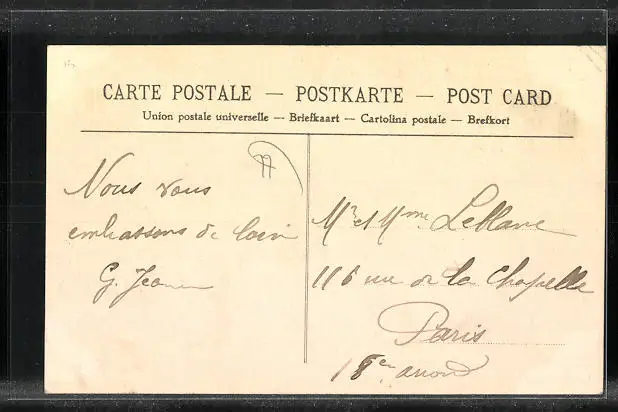 CARTE POSTALE — POSTKARTE — POST CARD
Union postale universelle — Briefkaart — Cartolina postale — Brefkort
Nous vous
embrassons de loin
G. Jeanne
Mr et Mme Leblanc
116 rue de la Chapelle
Paris
18em arrond